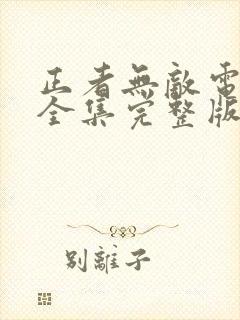 正者無敵電
全集完整版
別離子